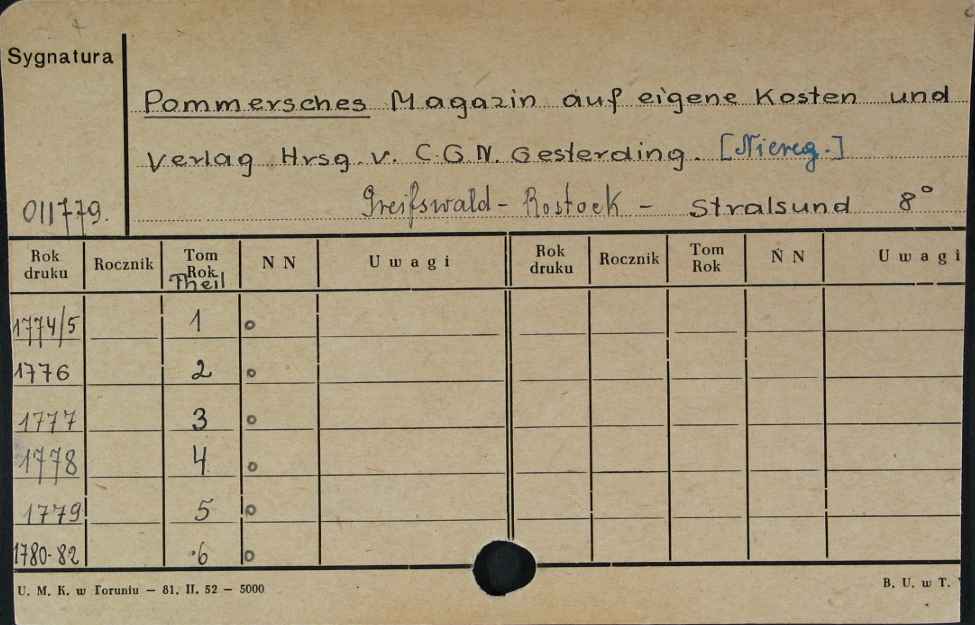 Sygnatura
Pommersches Magazin auf eigene Kosten und
Verlag Hrsg. v. C.G.N. Gesterding. [Niereg.]
011779. Greifswald - Rostock - Stralsund 8°
Rok druku Rocznik Tom Rok Theil N N Uwagi Rok druku Rocznik Tom Rok N N Uwagi
1774/5 1 o
1776 2 o
1777 3 o
1778 4 o
1779 5 o
1780-82 6 o
U. M. K. w Toruniu – 81. II. 52 – 5000 B. U. w T.